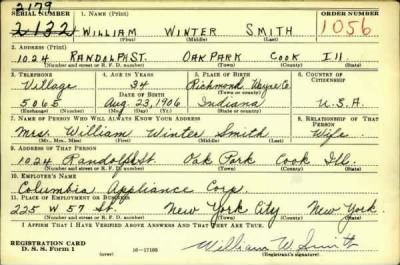 2179
SERIAL NUMBER 1. NAME (Print) ORDER NUMBER
2132 WILLIAM WINTER SMITH 1056
(First) (Middle) (Last)
2. ADDRESS (Print)
1024 RANDOLPH ST. OAK PARK COOK Ill
(Number and street or R. F. D. number) (Town) (County) (State)
3. TELEPHONE 4. AGE IN YEARS 5. PLACE OF BIRTH 6. COUNTRY OF CITIZENSHIP
Village 34 Richmond, Wayne Co.
DATE OF BIRTH
5065 Aug. 23, 1906 Indiana U.S.A.
7. NAME OF PERSON WHO WILL ALWAYS KNOW YOUR ADDRESS 8. RELATIONSHIP OF THAT PERSON
Mrs. William Winter Smith Wife
(Mr., Mrs., Miss) (First) (Middle) (Last)
9. ADDRESS OF THAT PERSON
1024 Randolph St. Oak Park Cook Ill.
(Number and street or R. F. D. number) (Town) (County) (State)
10. EMPLOYER'S NAME
Columbia Appliance Corp.
11. PLACE OF EMPLOYMENT OR BUSINESS
225 W 57 St. New York City New York
(Number and street or R. F. D. number) (Town) (County) (State)
I AFFIRM THAT I HAVE VERIFIED ABOVE ANSWERS AND THAT THEY ARE TRUE.
REGISTRATION CARD
D. S. S. Form 1 (over) William W. Smith
(Registrant's signature)